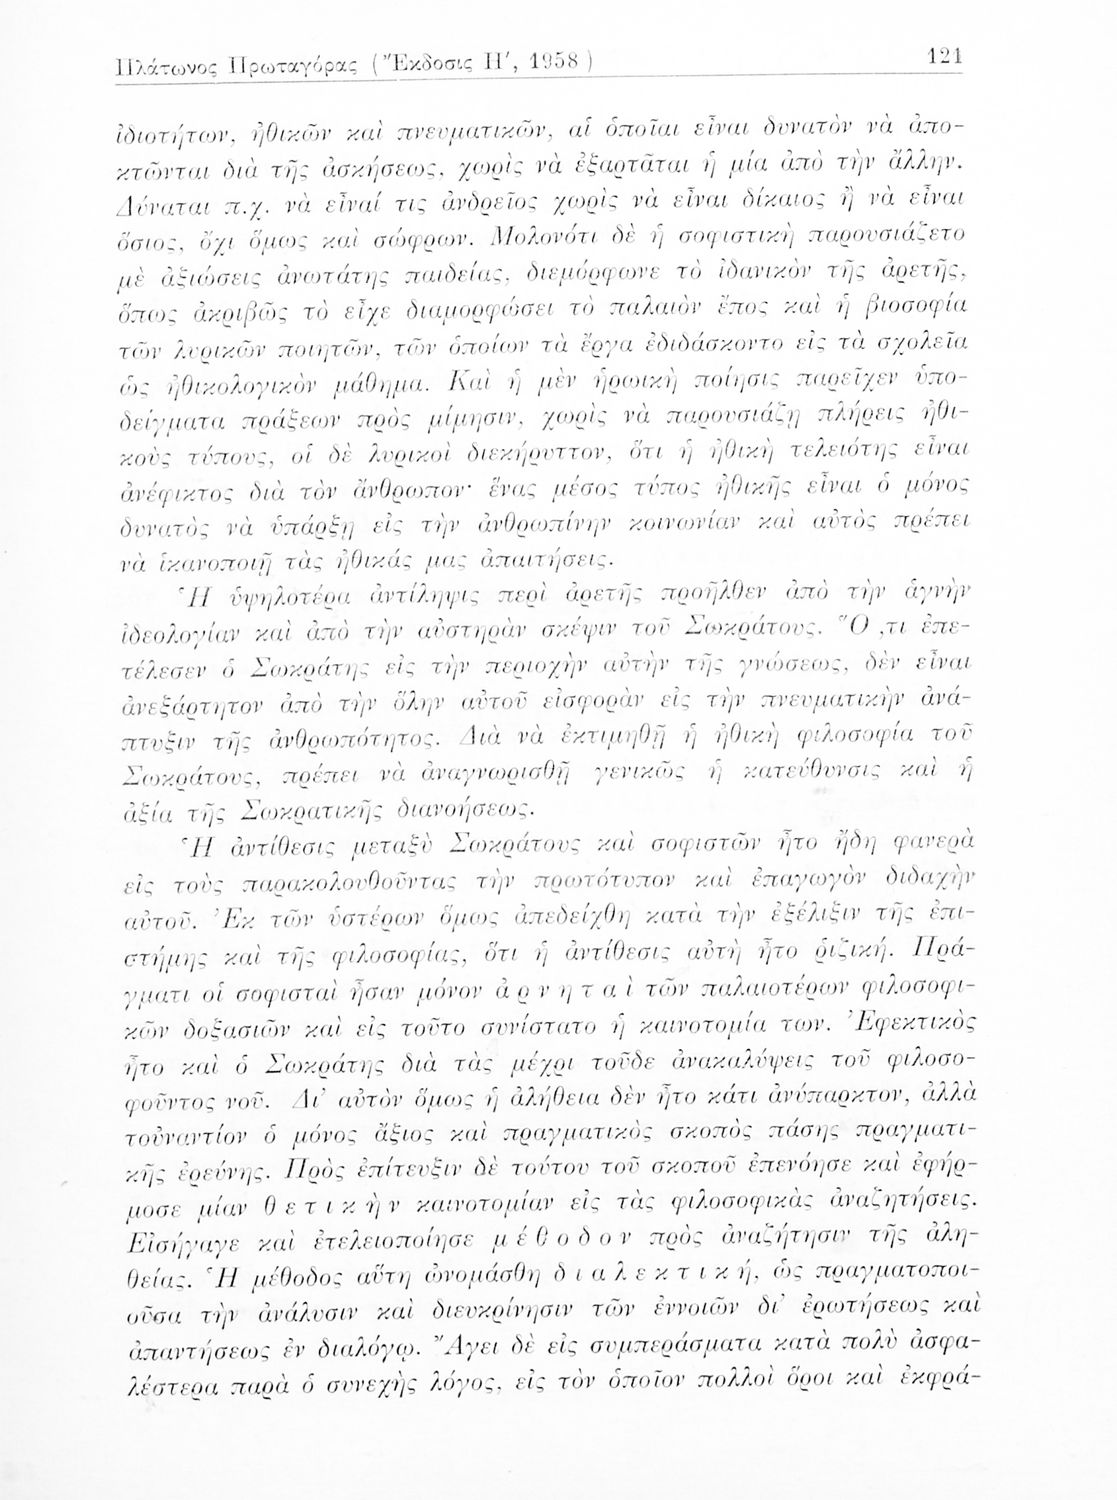 Πλάτωνος Πρωταγόρας (Ἔκδοσις Η΄, 1958) 121
ἰδιοτήτων, ἠθικῶν καὶ πνευματικῶν, αἱ ὁποῖαι εἶναι δυνατὸν νὰ ἀπο-
κτῶνται διὰ τῆς ἀσκήσεως, χωρὶς νὰ ἐξαρτᾶται ἡ μία ἀπὸ τὴν ἄλλην.
Δύναται π.χ. νὰ εἶναί τις ἀνδρεῖος χωρὶς νὰ εἶναι δίκαιος ἢ νὰ εἶναι
ὅσιος, ὄχι ὅμως καὶ σώφρων. Μολονότι δὲ ἡ σοφιστικὴ παρουσιάζετο
μὲ ἀξιώσεις ἀνωτάτης παιδείας, διεμόρφωνε τὸ ἰδανικὸν τῆς ἀρετῆς,
ὅπως ἀκριβῶς τὸ εἶχε διαμορφώσει τὸ παλαιὸν ἔπος καὶ ἡ βιοσοφία
τῶν λυρικῶν ποιητῶν, τῶν ὁποίων τὰ ἔργα ἐδιδάσκοντο εἰς τὰ σχολεῖα
ὡς ἠθικολογικὸν μάθημα. Καὶ ἡ μὲν ἡρωικὴ ποίησις παρεῖχεν ὑπο-
δείγματα πράξεων πρὸς μίμησιν, χωρὶς νὰ παρουσιάζῃ πλήρεις ἠθι-
κοὺς τύπους, οἱ δὲ λυρικοὶ διεκήρυττον, ὅτι ἡ ἠθικὴ τελειότης εἶναι
ἀνέφικτος διὰ τὸν ἄνθρωπον· ἕνας μέσος τύπος ἠθικῆς εἶναι ὁ μόνος
δυνατὸς νὰ ὑπάρξῃ εἰς τὴν ἀνθρωπίνην κοινωνίαν καὶ αὐτὸς πρέπει
νὰ ἱκανοποιῇ τὰς ἠθικάς μας ἀπαιτήσεις.
Ἡ ὑψηλοτέρα ἀντίληψις περὶ ἀρετῆς προῆλθεν ἀπὸ τὴν ἁγνὴν
ἰδεολογίαν καὶ ἀπὸ τὴν αὐστηρὰν σκέψιν τοῦ Σωκράτους. Ὅ,τι ἐπε-
τέλεσεν ὁ Σωκράτης εἰς τὴν περιοχὴν αὐτὴν τῆς γνώσεως, δὲν εἶναι
ἀνεξάρτητον ἀπὸ τὴν ὅλην αὐτοῦ εἰσφορὰν εἰς τὴν πνευματικὴν ἀνά-
πτυξιν τῆς ἀνθρωπότητος. Διὰ νὰ ἐκτιμηθῇ ἡ ἠθικὴ φιλοσοφία τοῦ
Σωκράτους, πρέπει νὰ ἀναγνωρισθῇ γενικῶς ἡ κατεύθυνσις καὶ ἡ
ἀξία τῆς Σωκρατικῆς διανοήσεως.
Ἡ ἀντίθεσις μεταξὺ Σωκράτους καὶ σοφιστῶν ἦτο ἤδη φανερὰ
εἰς τοὺς παρακολουθοῦντας τὴν πρωτότυπον καὶ ἐπαγωγὸν διδαχὴν
αὐτοῦ. Ἐκ τῶν ὑστέρων ὅμως ἀπεδείχθη κατὰ τὴν ἐξέλιξιν τῆς ἐπι-
στήμης καὶ τῆς φιλοσοφίας, ὅτι ἡ ἀντίθεσις αὐτὴ ἦτο ῥιζική. Πρά-
γματι οἱ σοφισταὶ ἦσαν μόνον ἀρνηταὶ τῶν παλαιοτέρων φιλοσοφι-
κῶν δοξασιῶν καὶ εἰς τοῦτο συνίστατο ἡ καινοτομία των. Ἐφεκτικὸς
ἦτο καὶ ὁ Σωκράτης διὰ τὰς μέχρι τοῦδε ἀνακαλύψεις τοῦ φιλοσο-
φοῦντος νοῦ. Δι' αὐτὸν ὅμως ἡ ἀλήθεια δὲν ἦτο κάτι ἀνύπαρκτον, ἀλλὰ
τοὐναντίον ὁ μόνος ἄξιος καὶ πραγματικὸς σκοπὸς πάσης πραγματι-
κῆς ἐρεύνης. Πρὸς ἐπίτευξιν δὲ τούτου τοῦ σκοποῦ ἐπενόησε καὶ ἐφήρ-
μοσε μίαν θετικὴν καινοτομίαν εἰς τὰς φιλοσοφικὰς ἀναζητήσεις.
Εἰσήγαγε καὶ ἐτελειοποίησε μέθοδον πρὸς ἀναζήτησιν τῆς ἀλη-
θείας. Ἡ μέθοδος αὕτη ὠνομάσθη διαλεκτική, ὡς πραγματοποι-
οῦσα τὴν ἀνάλυσιν καὶ διευκρίνησιν τῶν ἐννοιῶν δι' ἐρωτήσεως καὶ
ἀπαντήσεως ἐν διαλόγῳ. Ἄγει δὲ εἰς συμπεράσματα κατὰ πολὺ ἀσφα-
λέστερα παρὰ ὁ συνεχὴς λόγος, εἰς τὸν ὁποῖον πολλοὶ ὅροι καὶ ἐκφρά-